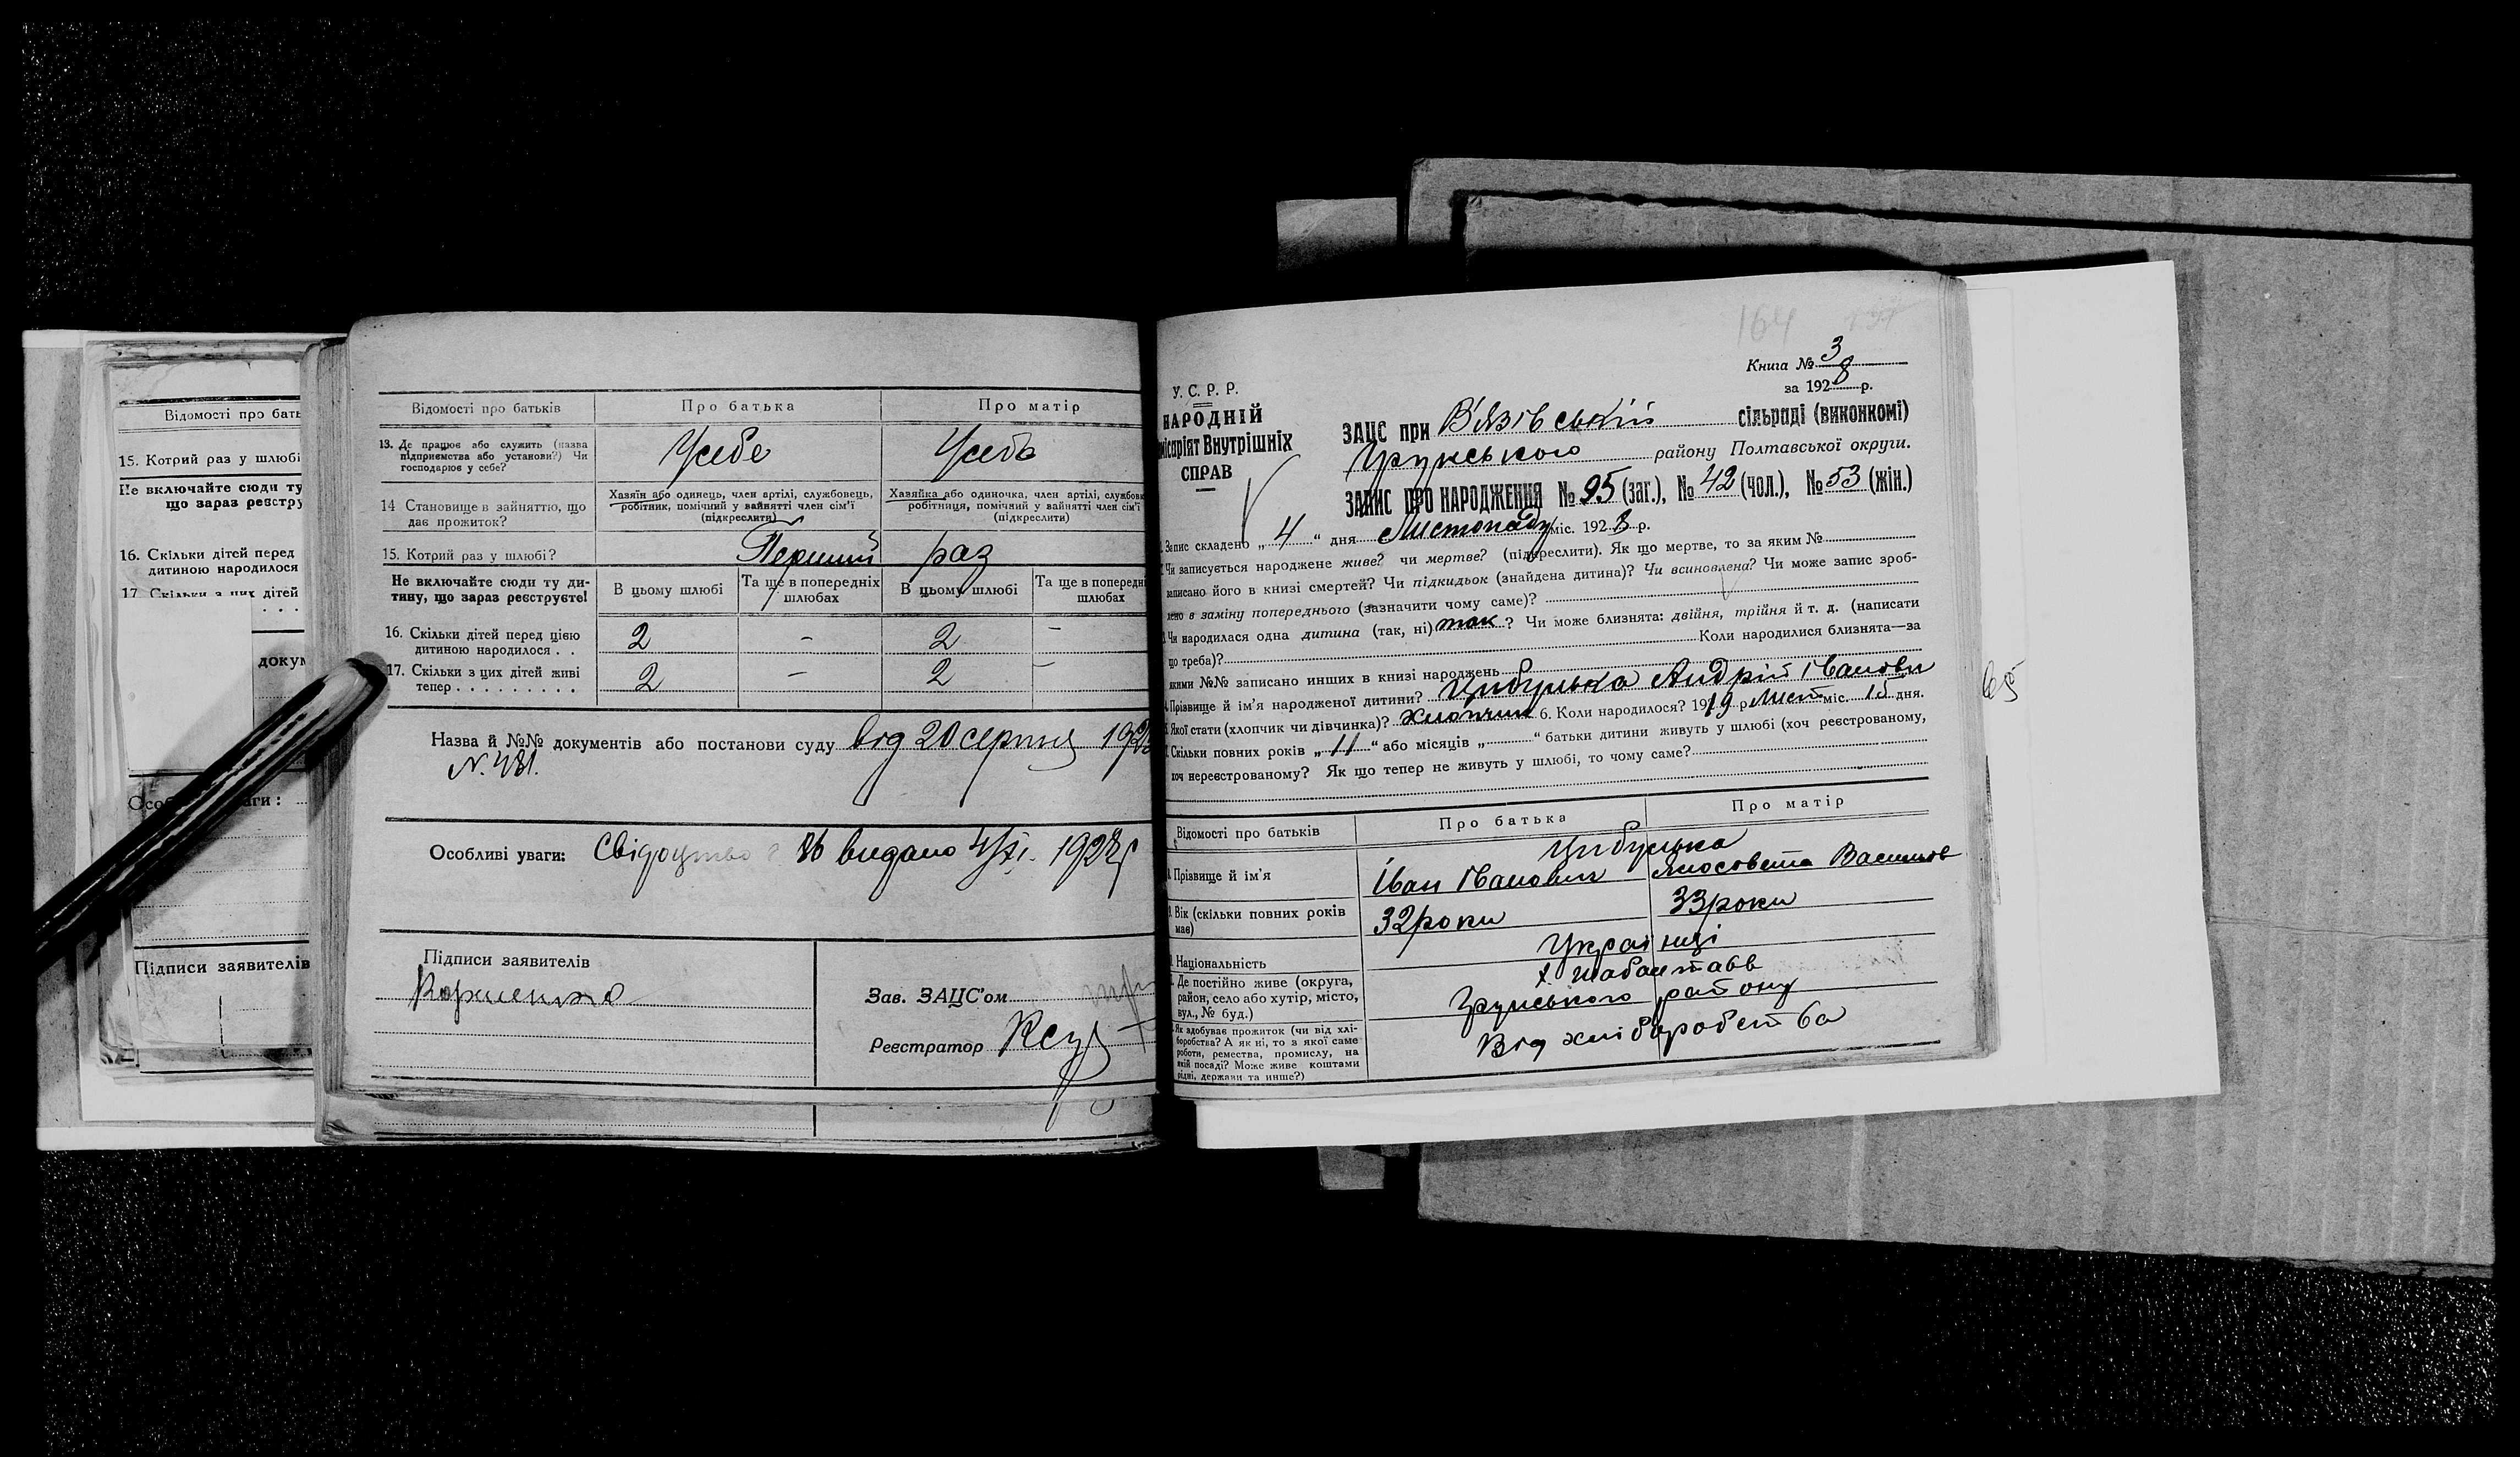 Відомості про бать
15. Котрий раз у шлюбі
Не включайте сюди ту
що зараз реєстру
16. Скільки дітей перед
дитиною народилося
17. Скільки з цих дітей
докум
Підписи заявителів
Відомості про батьків
Про батька
Про матір
13. Де працює або служить (назва
підприємства або установи?) Чи
господарює у себе?
Усебе
Усебе
14 Становище в зайняттю, що
дає прожиток?
Хазяїн або одинець, член артілі, службовець,
робітник, помічний у зайнятті член сім'ї
(підкреслити)
Хазяйка або одиночка, член артілі, службов
робітниця, помічний у зайнятті член сім'ї
(підкреслити)
15. Котрий раз у шлюбі?
Перший раз
Не включайте сюди ту ди-
тину, що зараз реєструєте!
В цьому шлюбі
Та ще в попередніх
шлюбах
В цьому шлюбі
Та ще в попередні
шлюбах
16. Скільки дітей перед цією
дитиною народилося . .
2 - 2 -
17. Скільки з цих дітей живі
тепер . . . . . . . . .
2 - 2 -
Назва й №№ документів або постанови суду від 20 серпня 192
N. 481.
Особливі уваги: Свідоцтво 86 видано 4/XI. 1928
Підписи заявителів
Зав. ЗАЦС'ом
Реєстратор
164
Книга № 3
за 1928 р.
У. С. Р. Р.
НАРОДНІЙ
місаріят Внутрішніх
СПРАВ
ЗАЦС при В'язівській сільраді (виконкомі)
Грунського району Полтавської округи.
ЗАПИС ПРО НАРОДЖЕННЯ № 95 (заг.), № 42 (чол.), № 53 (жін.)
Запис складено „ 4 “ дня Листопаду міс. 192 8 р.
Чи записується народжене живе? чи мертве? (підкреслити). Як що мертве, то за яким №
записано його в книзі смертей? Чи підкидьок (знайдена дитина)? Чи всиновлена? Чи може запис зроб-
лено в заміну попереднього (зазначити чому саме)?
Чи народилася одна дитина (так, ні) так ? Чи може близнята: двійня, трійня й т. д. (написати
що треба)? Коли народилися близнята—за
якими №№ записано инших в книзі народжень
Прізвище й ім'я народженої дитини? Цибулька Андрій Іванови
Якої стати (хлопчик чи дівчинка)? хлопчик 6. Коли народилося? 1919 р Лист міс. 15 дня.
65
Скільки повних років „ 11 “ або місяців „ “ батьки дитини живуть у шлюбі (хоч реєстрованому,
хоч нереєстрованому? Як що тепер не живуть у шлюбі, то чому саме?
Відомості про батьків
Про батька
Про матір
Прізвище й ім'я
Цибулька
Іван Іванович
Вік (скільки повних років
має)
32 роки
33 роки
Національність
Українці
Де постійно живе (округа,
район, село або хутір, місто,
вул., № буд.)
Грунського району
Як здобуває прожиток (чи від хлі-
боробства? А як ні, то з якої саме
роботи, ремества, промислу, на
якій посаді? Може живе коштами
рідні, держави та инше?)
Від хліборобства